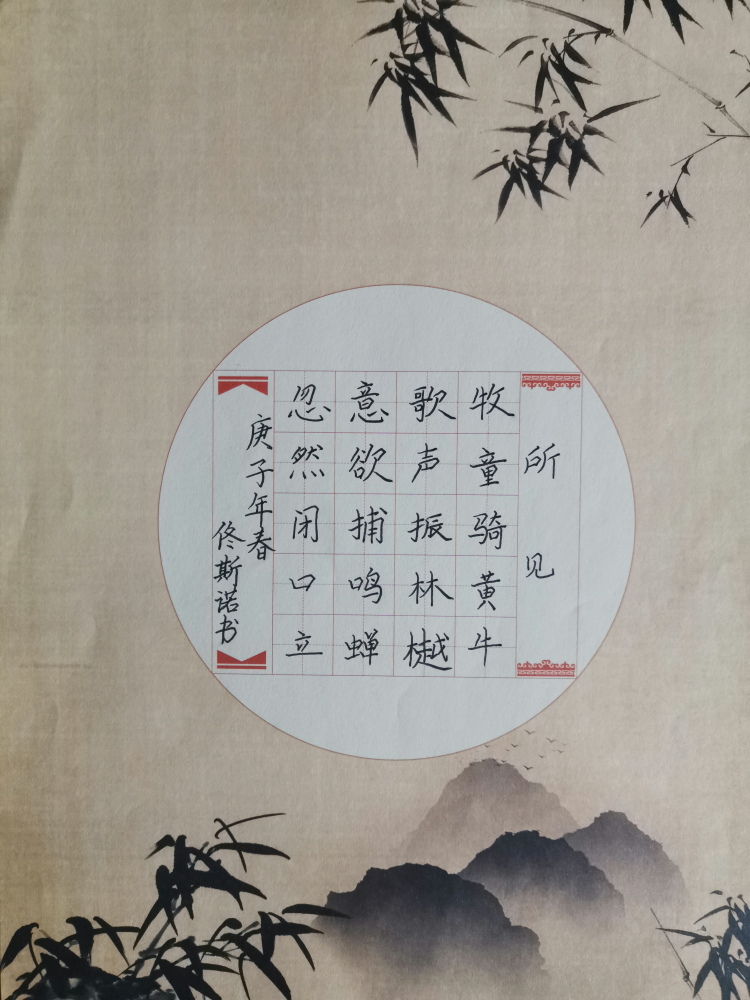 所见
牧童骑黄牛
歌声振林樾
意欲捕鸣蝉
忽然闭口立
庚子年春
佟斯诺书